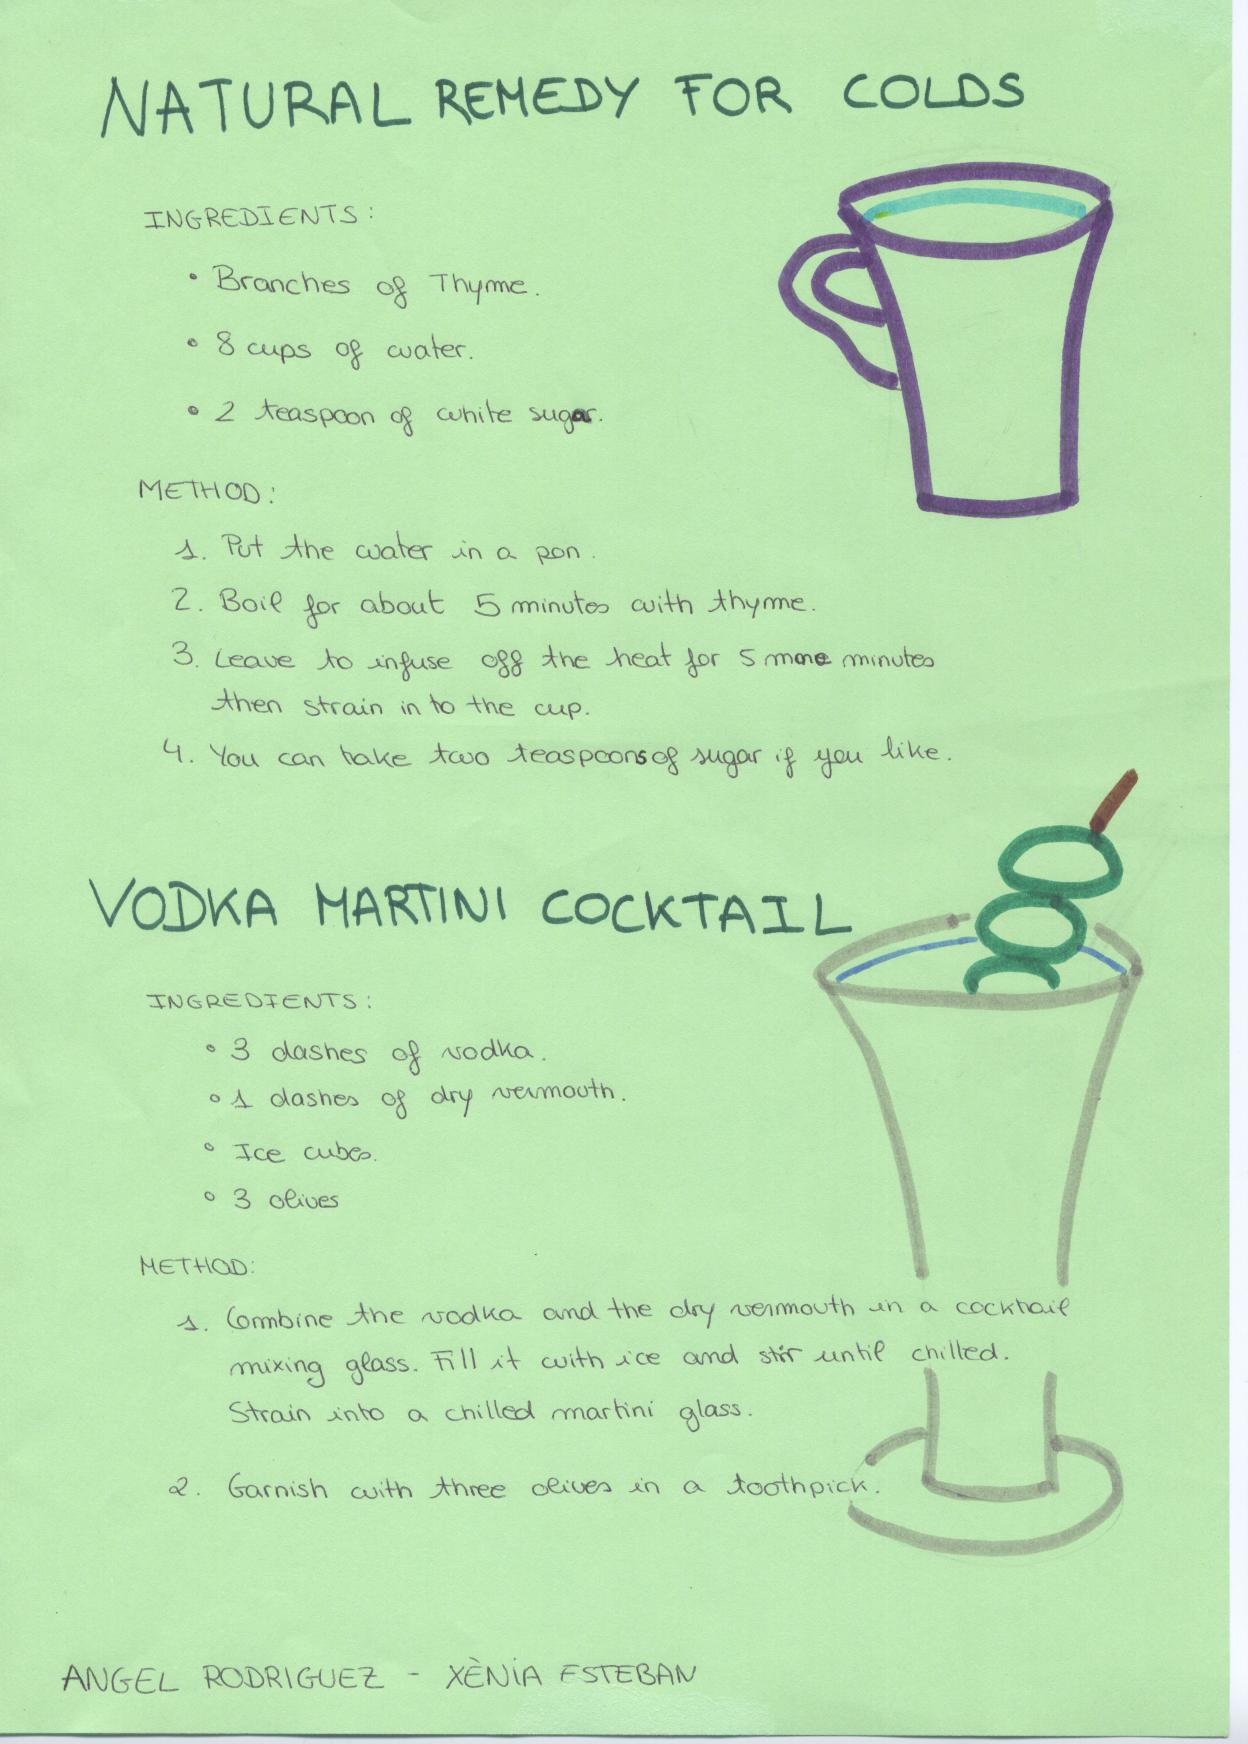 NATURAL REMEDY FOR COLDS
INGREDIENTS:
• Branches of Thyme.
• 8 cups of water.
• 2 teaspoon of white sugar.
METHOD:
1. Put the water in a pan.
2. Boil for about 5 minutes with thyme.
3. Leave to infuse off the heat for 5 more minutes
then strain in to the cup.
4. You can take two teaspoons of sugar if you like.
VODKA MARTINI COCKTAIL
INGREDIENTS:
• 3 dashes of vodka.
• 1 dashes of dry vermouth.
• Ice cubes.
• 3 olives
METHOD:
1. Combine the vodka and the dry vermouth in a cocktail
mixing glass. Fill it with ice and stir until chilled.
Strain into a chilled martini glass.
2. Garnish with three olives in a toothpick.
ANGEL RODRIGUEZ - XÈNIA ESTEBAN